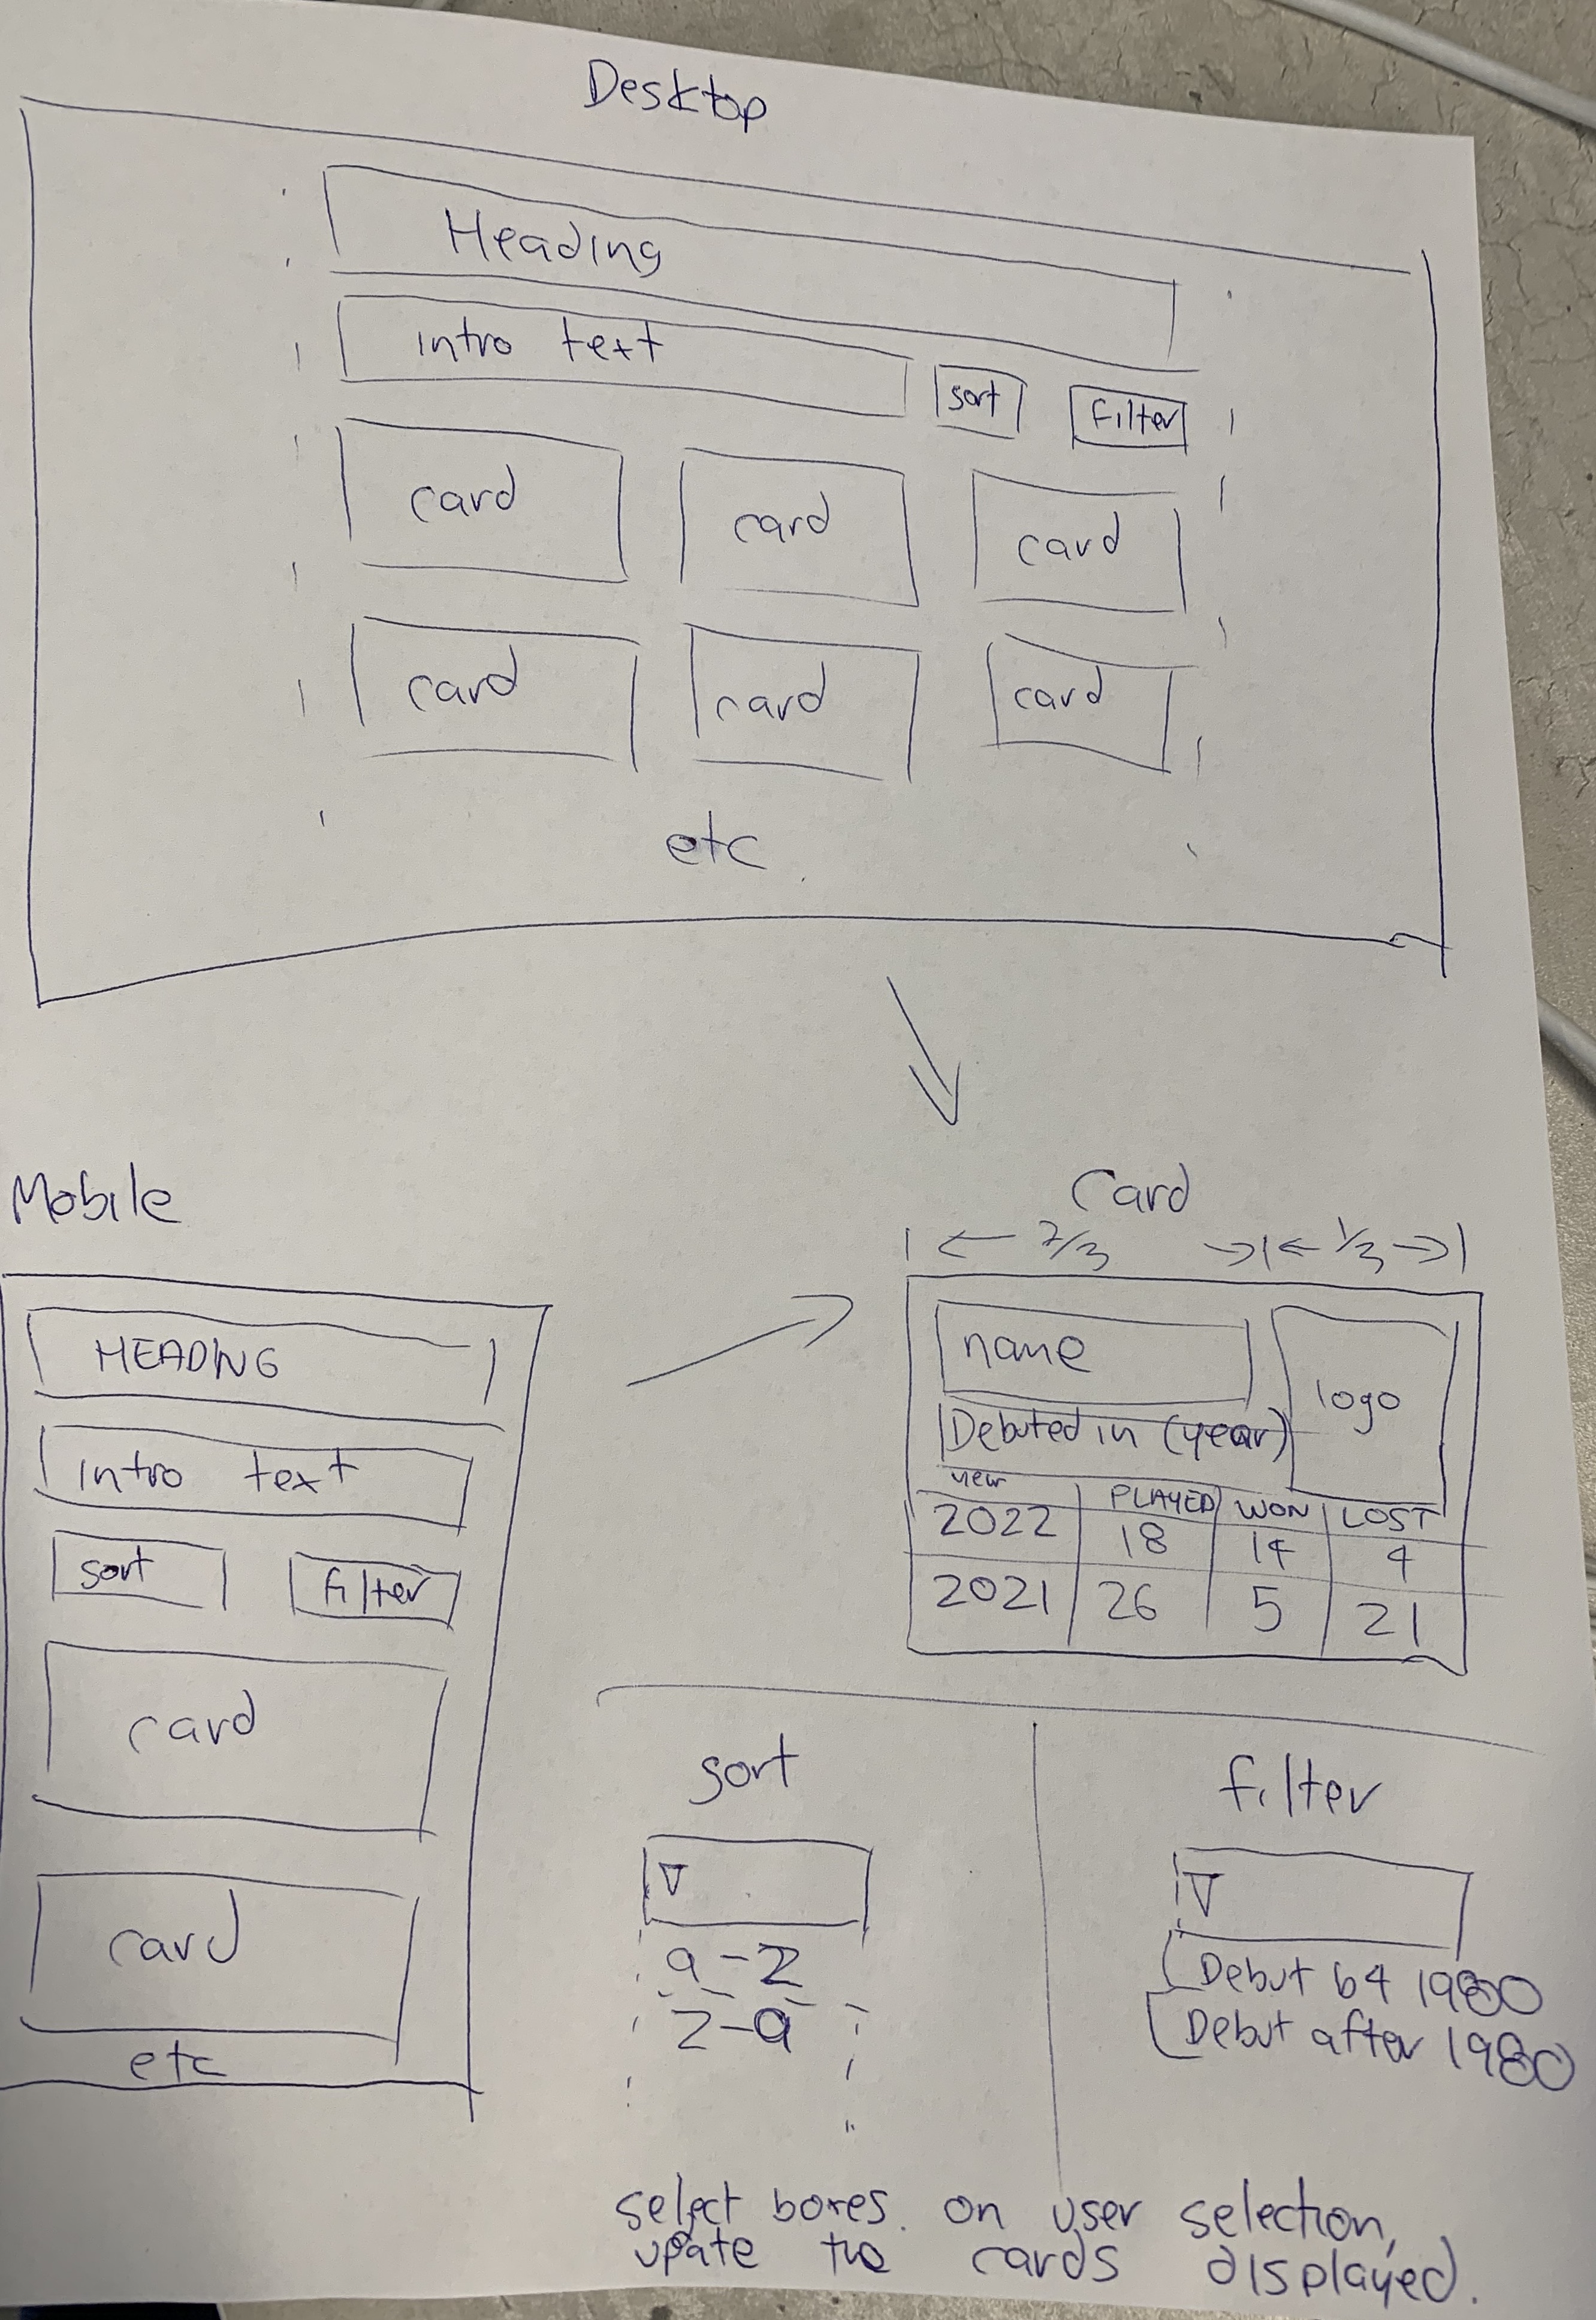 Desktop
Heading
intro text
sort
Filter
card
card
card
card
card
card
etc
Mobile
HEADING
Intro text
sort
filter
card
card
etc
Card
2/3
1/3
name
logo
Debuted in (year)
year PLAYED WON LOST
2022 18 14 4
2021 26 5 21
sort
a-z
z-a
filter
Debut b4 1980
Debut after 1980
select boxes. on user selection,
upate the cards displayed.